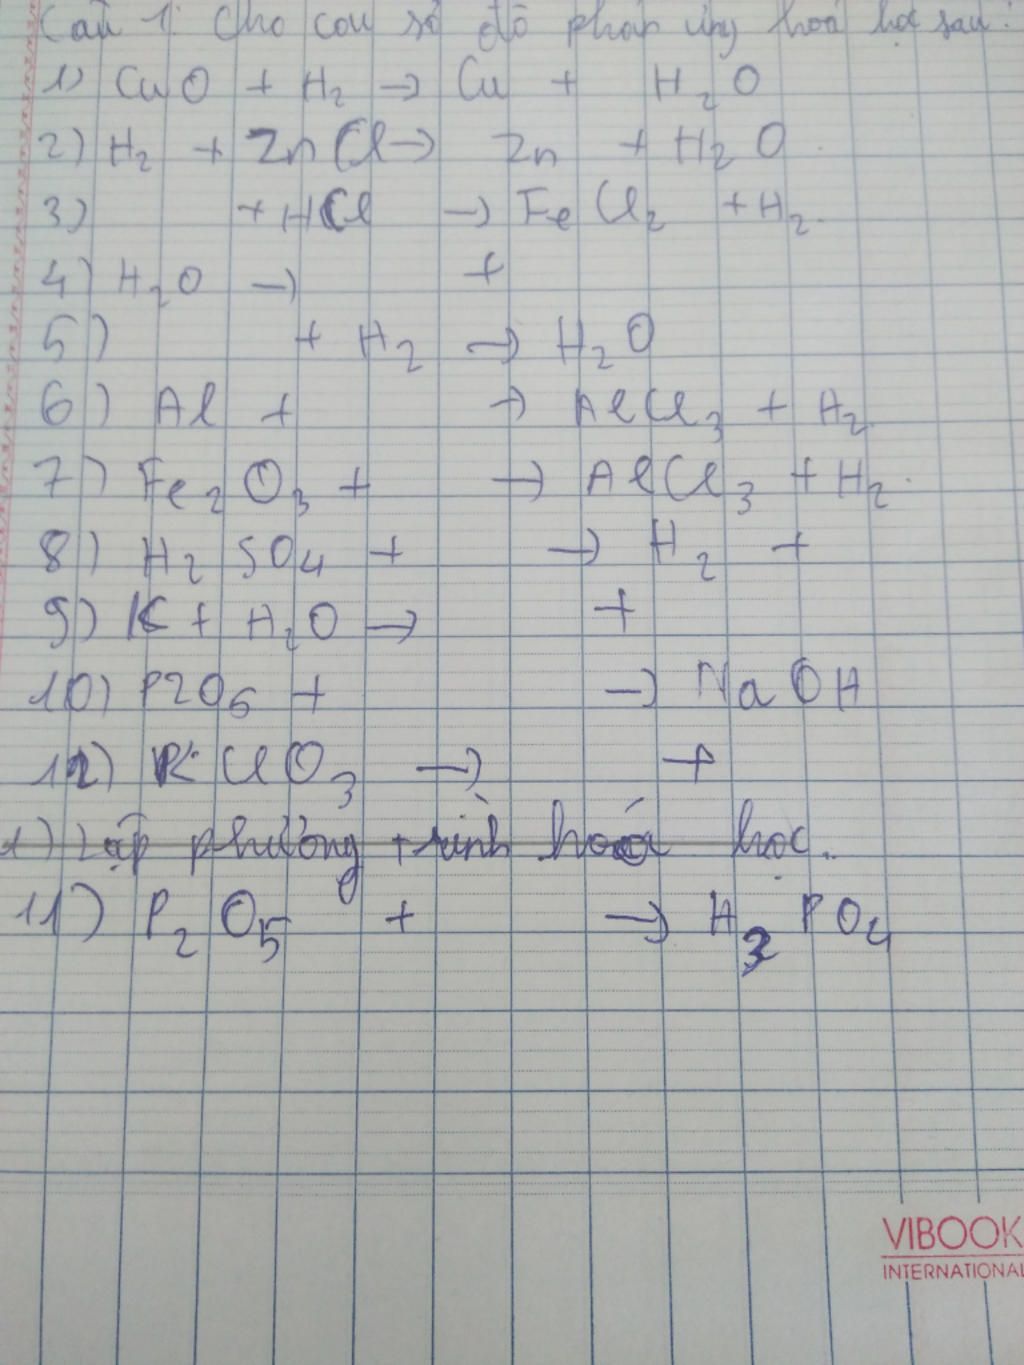 Câu 1: Cho con sơ đồ phản ứng hoá học sau:
1) CuO + H₂ → Cu + H₂O
2) H₂ + ZnCl → Zn + H₂O.
3) + HCl → FeCl₂ + H₂.
4) H₂O → +
5) + H₂ → H₂O
6) Al + → AlCl₃ + H₂
7) Fe₂O₃ + → AlCl₃ + H₂.
8) H₂SO₄ + → H₂ +
9) K + H₂O → +
10) P2O₆ + → NaOH
12) KClO₃ → +
1) Lập phường trình hoá học.
11) P₂O₅ + → H₃PO₄
VIBOOK
INTERNATIONAL